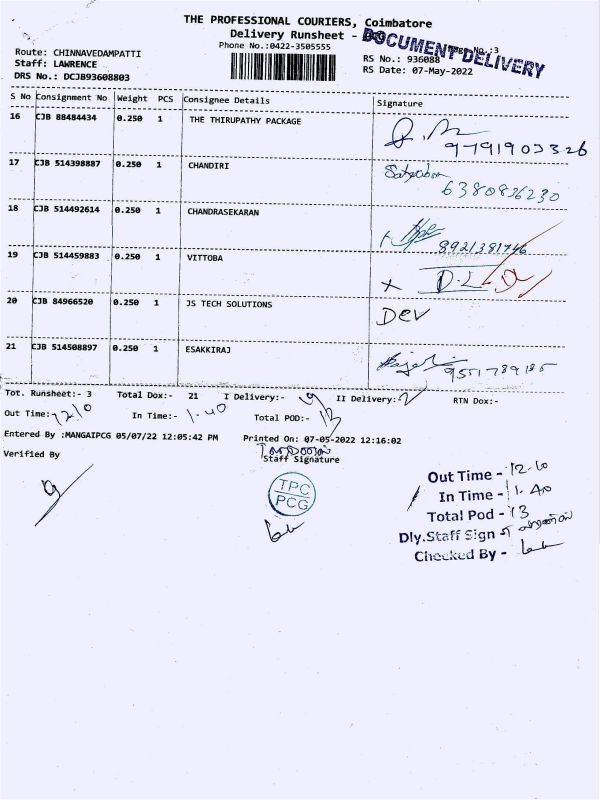 THE PROFESSIONAL COURIERS, Coimbatore
Delivery Runsheet - PCG
DOCUMENT DELIVERY
Phone No.:0422-3505555
Page No.:3
Route: CHINNAVEDAMPATTI
RS No.: 936088
Staff: LAWRENCE
RS Date: 07-May-2022
DRS No.: DCJB93608803
S No Consignment No Weight PCS Consignee Details Signature
16 CJB 88484434 0.250 1 THE THIRUPATHY PACKAGE
9791903326
17 CJB 514398887 0.250 1 CHANDIRI
6380836230
18 CJB 514492614 0.250 1 CHANDRASEKARAN
8921381746
19 CJB 514459883 0.250 1 VITTOBA
x D.L
20 CJB 84966520 0.250 1 JS TECH SOLUTIONS
Dev
21 CJB 514508897 0.250 1 ESAKKIRAJ
9551789185
Tot. Runsheet:- 3 Total Dox:- 21 I Delivery:- II Delivery:- RTN Dox:-
Out Time:- 1210 In Time:- 1-40 Total POD:- 13
Entered By :MANGAIPCG 05/07/22 12:05:42 PM Printed On: 07-05-2022 12:16:02
Verified By
Staff Signature
TPC
PCG
Out Time - 12-10
In Time - 1.40
Total Pod - 13
Dly.Staff Sign
Checked By -